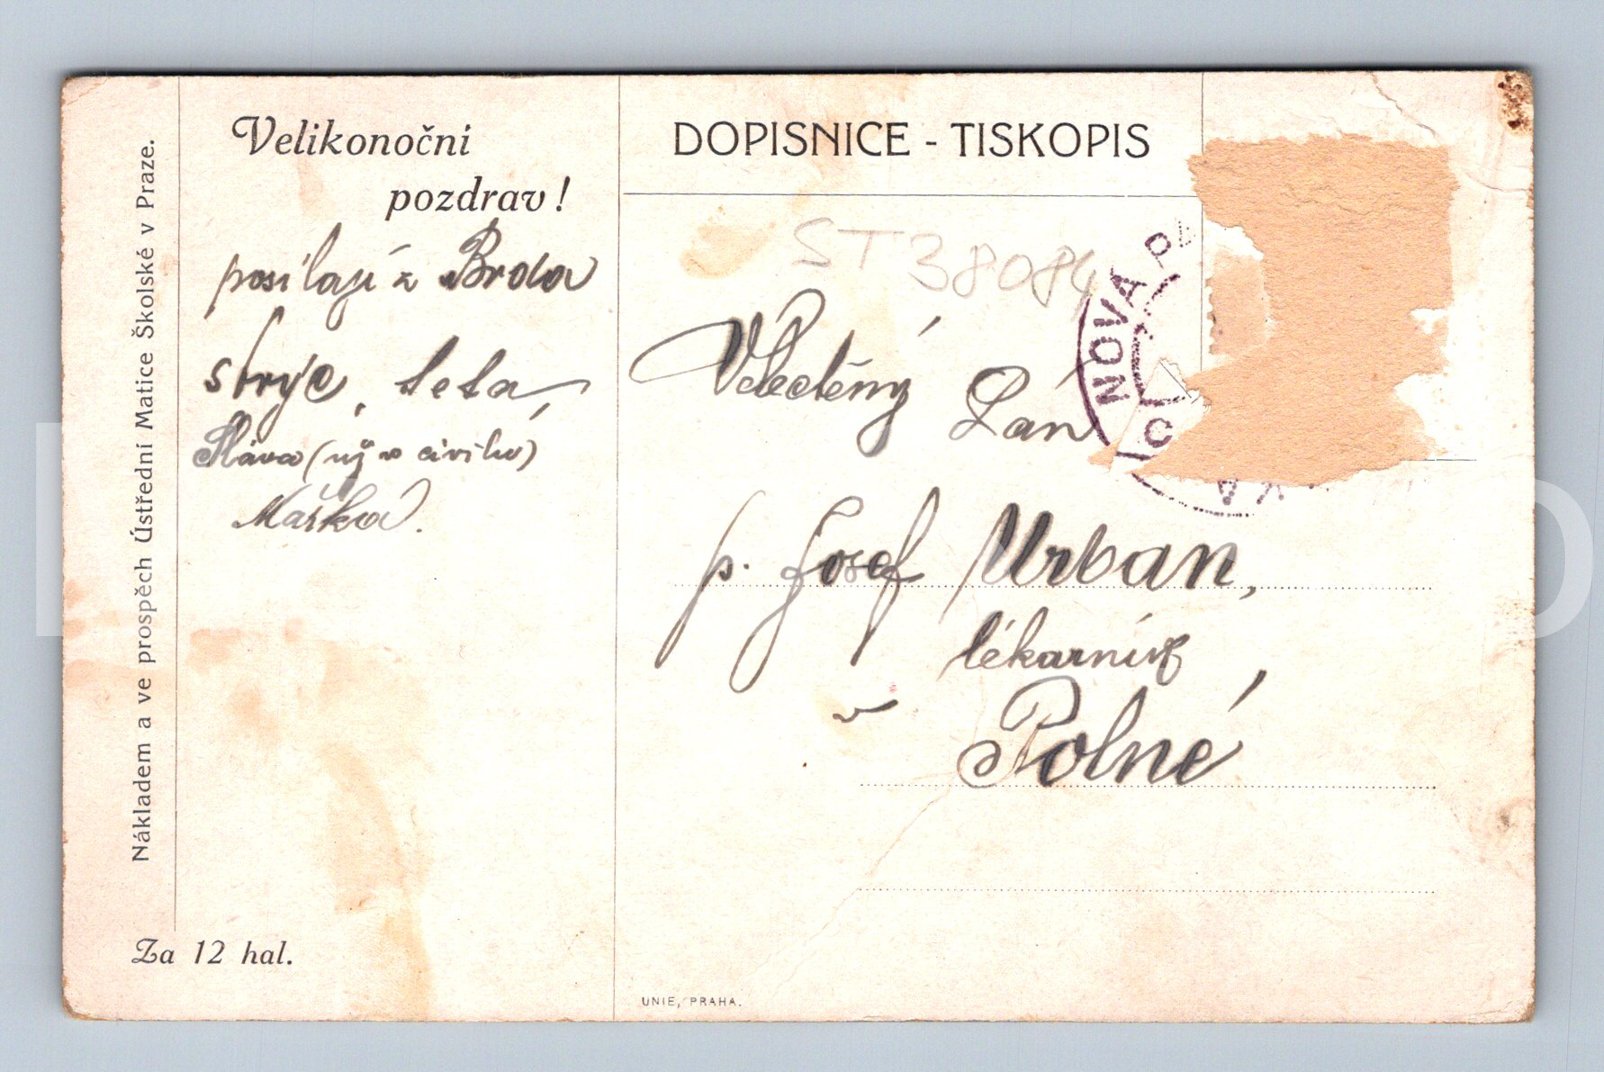 Nákladem a ve prospěch Ústřední Matice Školské v Praze.
Velikonoční
pozdrav!
posílají z Brda
strýc, teta,
Sláva (již v civilu)
Mařka.
Za 12 hal.
DOPISNICE - TISKOPIS
ST 38084
NOVA P
Velectěný Pán
p. Josef Urban,
lékárník
v Polné
UNIE, PRAHA.